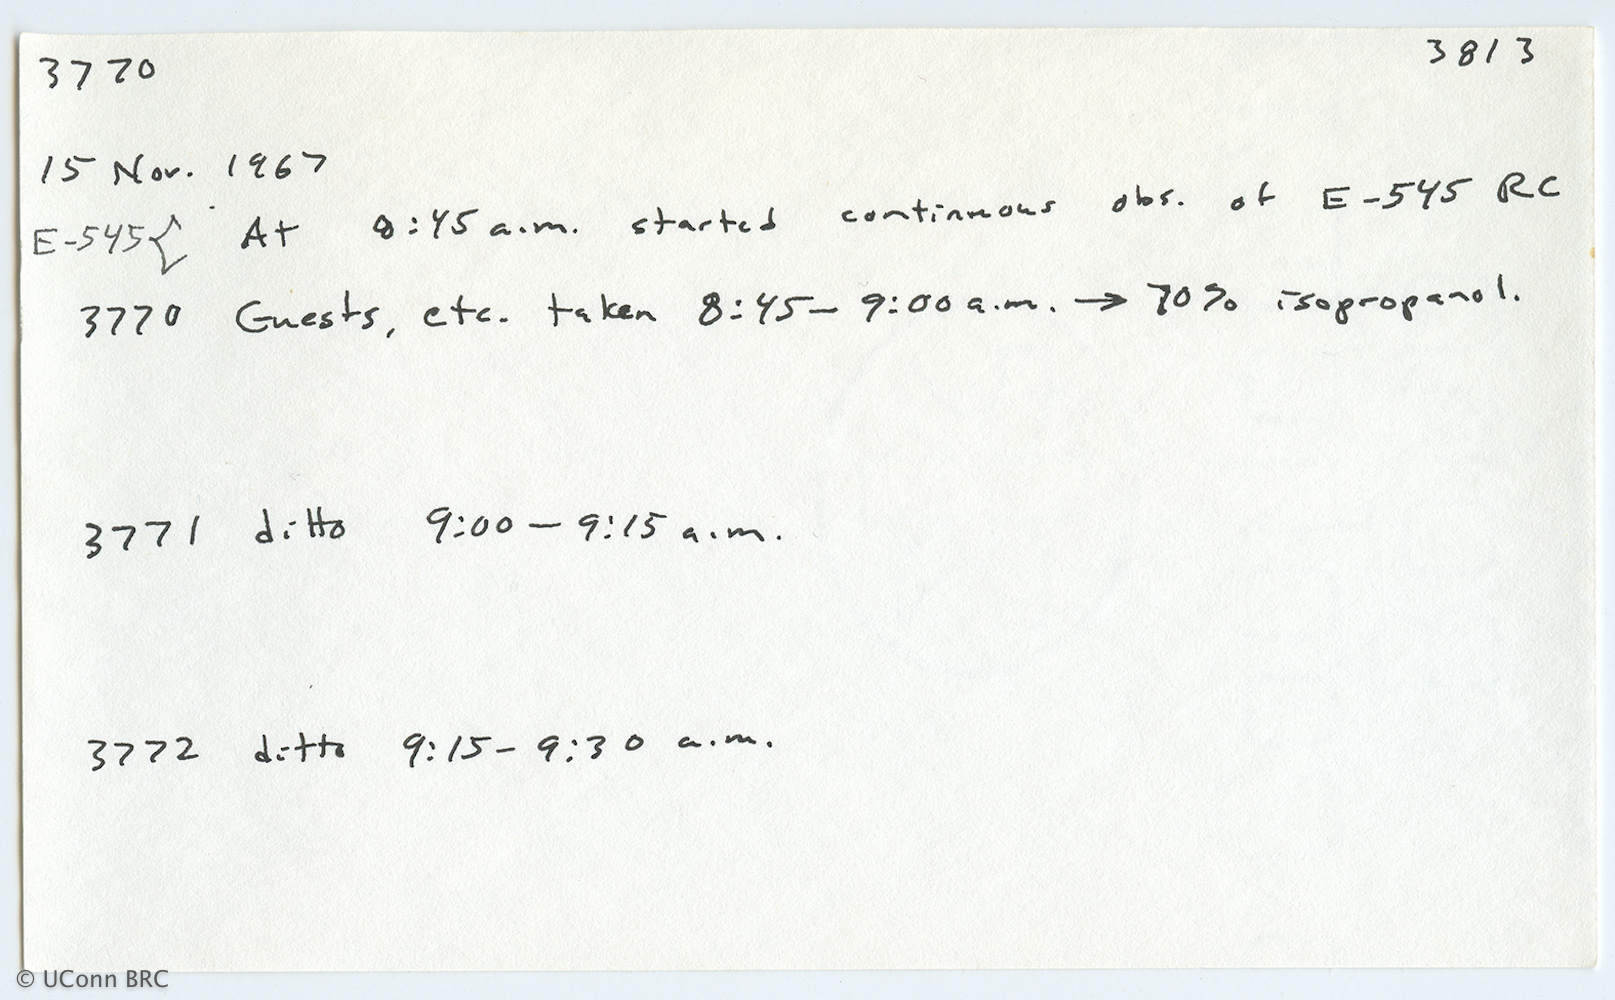 3770 3813
15 Nov. 1967
E-545{ At 8:45 a.m. started continuous obs. of E-545 RC
3770 Guests, etc. taken 8:45 – 9:00 a.m. → 70% isopropanol.
3771 ditto 9:00 – 9:15 a.m.
3772 ditto 9:15 – 9:30 a.m.
© UConn BRC